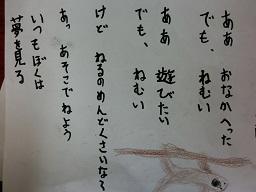 ああ おなかへった
でも、ねむい
ああ 遊びたい
でも、ねむい
けど ねるのめんどくさいなぁ
あっ あそこでねよう
いつもぼくは
夢を見る